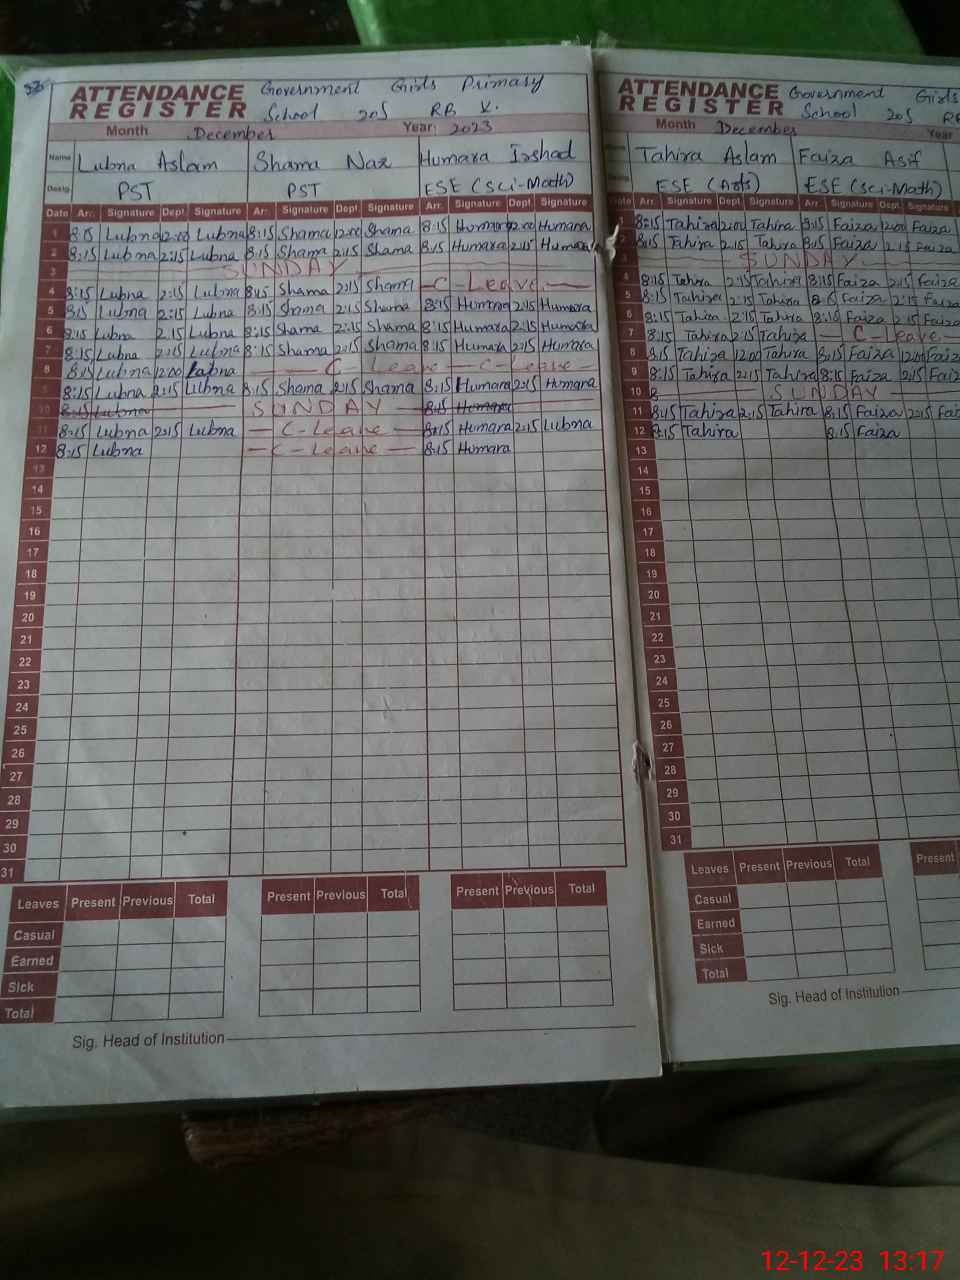 ATTENDANCE REGISTER Government Girls Primary School 205 RB V.
Month December Year: 2023
Name Lubna Aslam Shama Naz Humara Irshad
Desig. PST PST ESE (Sci-Math)
Date Arr. Signature Dept. Signature Arr. Signature Dept. Signature Arr. Signature Dept. Signature
1 8:15 Lubna 12:00 Lubna 8:15 Shama 12:00 Shama 8:15 Humara 12:00 Humara
2 8:15 Lubna 2:15 Lubna 8:15 Shama 2:15 Shama 8:15 Humara 2:15 Humara
3 SUNDAY
4 8:15 Lubna 2:15 Lubna 8:15 Shama 2:15 Shama C-Leave
5 8:15 Lubna 2:15 Lubna 8:15 Shama 2:15 Shama 8:15 Humara 2:15 Humara
6 8:15 Lubna 2:15 Lubna 8:15 Shama 2:15 Shama 8:15 Humara 2:15 Humara
7 8:15 Lubna 2:15 Lubna 8:15 Shama 2:15 Shama 8:15 Humara 2:15 Humara
8 8:15 Lubna 12:00 Lubna C-Leave C-Leave
9 8:15 Lubna 2:15 Lubna 8:15 Shama 2:15 Shama 8:15 Humara 2:15 Humara
10 8:15 Lubna SUNDAY 8:15 Humara
11 8:15 Lubna 2:15 Lubna C-Leave 8:15 Humara 2:15 Lubna
12 8:15 Lubna C-Leave 8:15 Humara
13
14
15
16
17
18
19
20
21
22
23
24
25
26
27
28
29
30
31
Leaves Present Previous Total Present Previous Total Present Previous Total
Casual
Earned
Sick
Total
Sig. Head of Institution
ATTENDANCE REGISTER Government Girls School 205
Month December Year
Tahira Aslam Faiza Asif
ESE (Arts) ESE (Sci-Math)
Date Arr. Signature Dept. Signature Arr. Signature Dept. Signature
1 8:15 Tahira 12:00 Tahira 8:15 Faiza 12:00 Faiza
2 8:15 Tahira 2:15 Tahira 8:15 Faiza 2:15 Faiza
3 SUNDAY
4 8:15 Tahira 2:15 Tahira 8:15 Faiza 2:15 Faiza
5 8:15 Tahira 2:15 Tahira 8:15 Faiza 2:15 Faiza
6 8:15 Tahira 2:15 Tahira 8:15 Faiza 2:15 Faiza
7 8:15 Tahira 2:15 Tahira C-Leave
8 8:15 Tahira 12:00 Tahira 8:15 Faiza 12:00 Faiza
9 8:15 Tahira 2:15 Tahira 8:15 Faiza 2:15 Faiza
10 8 SUNDAY
11 8:15 Tahira 2:15 Tahira 8:15 Faiza 2:15
12 8:15 Tahira 8:15 Faiza
13
14
15
16
17
18
19
20
21
22
23
24
25
26
27
28
29
30
31
Leaves Present Previous Total Present
Casual
Earned
Sick
Total
Sig. Head of Institution
12-12-23 13:17